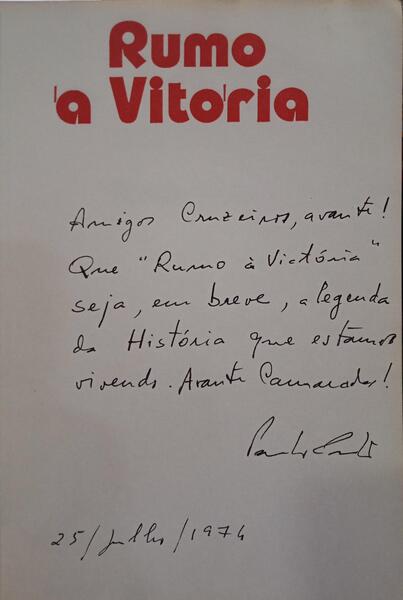 Rumo
à Vitória
Amigos Cruzeiros, avante!
Que "Rumo à Victória"
seja, em breve, a legenda
da História que estamos
vivendo. Avante Camaradas!
25/Julho/1974